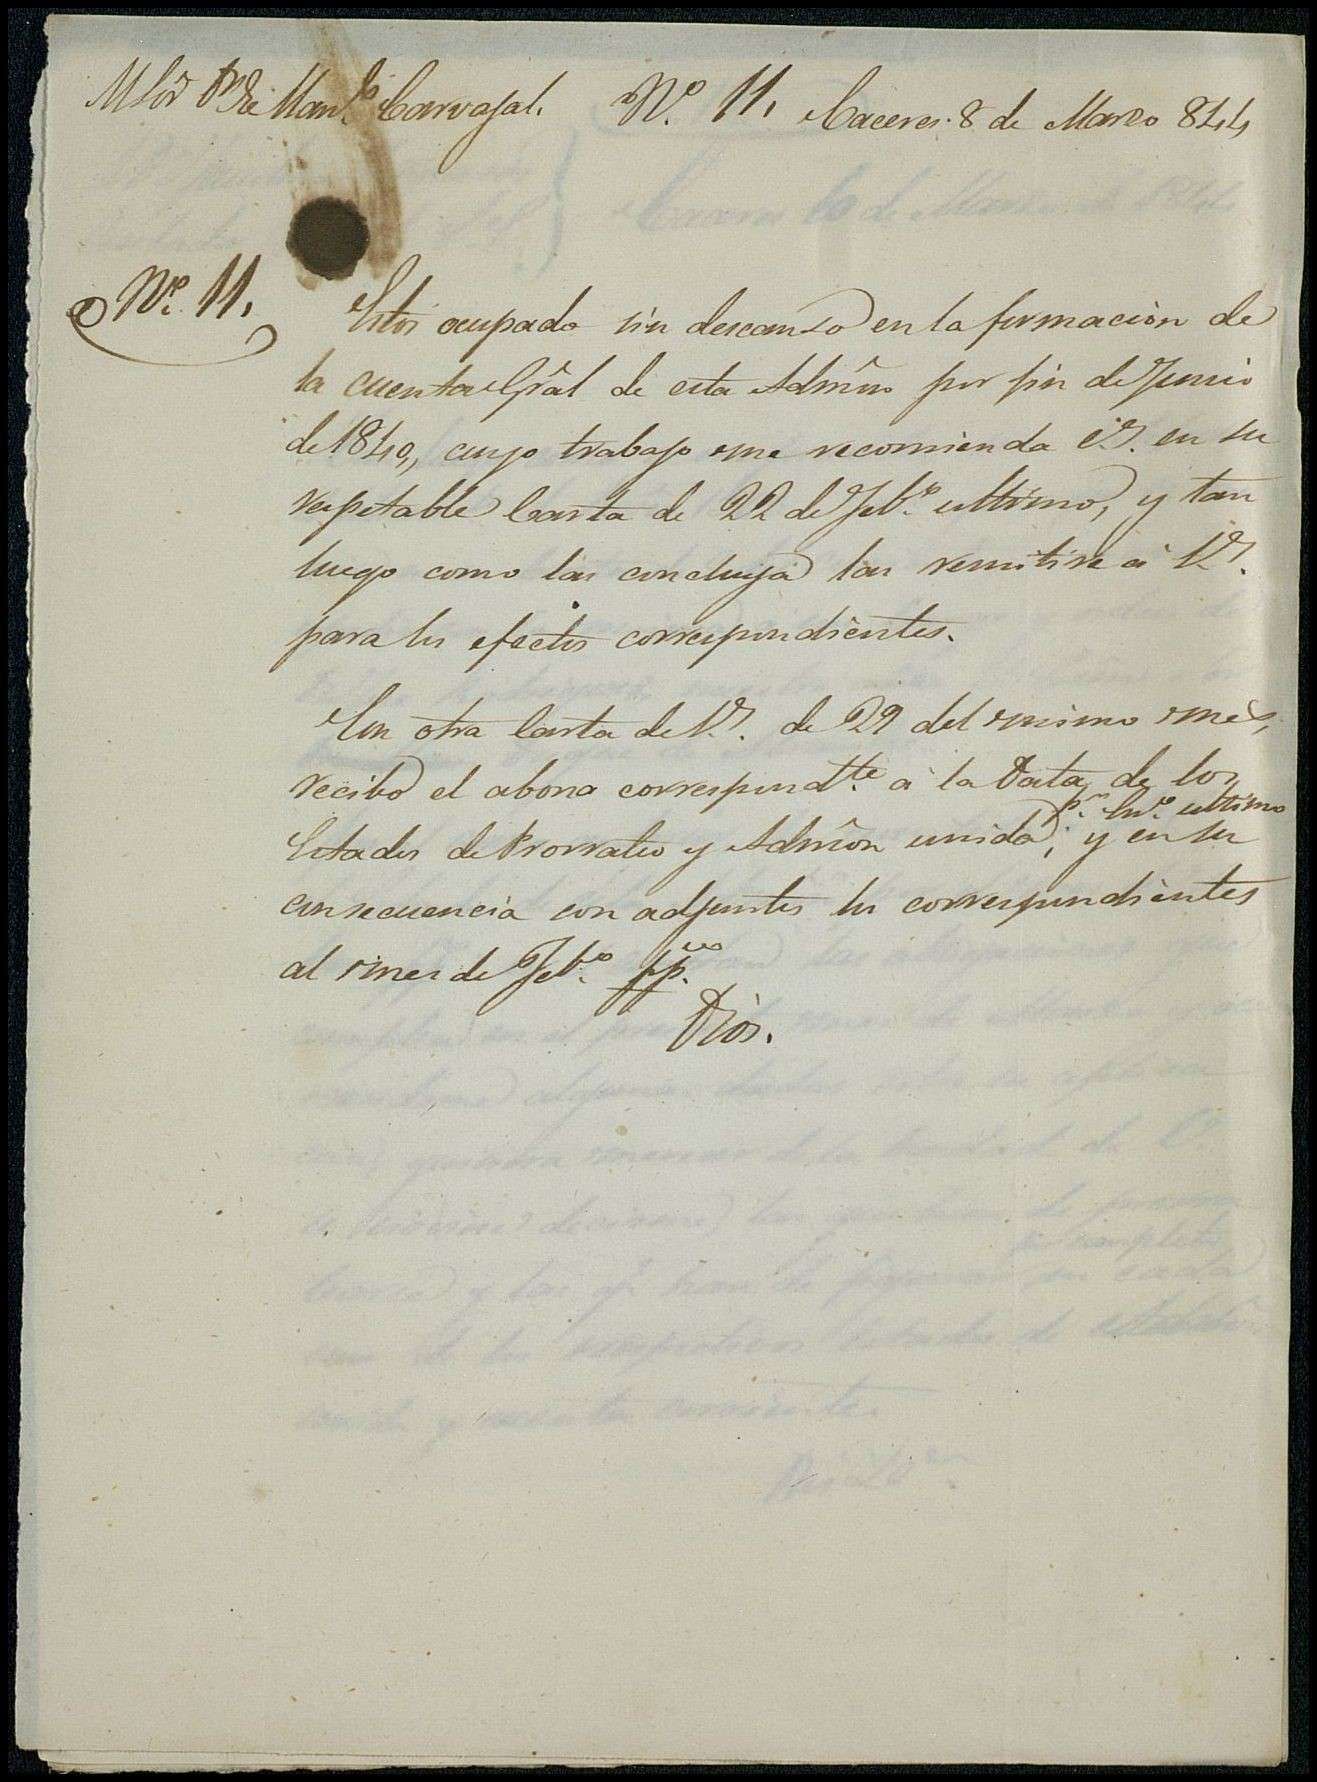 Sor Dn José Manl. Carvajal. Nº. 11. Caceres 8 de Marzo 844
Nº. 11.
Estoi ocupado sin descanso en la formacion de
la cuenta Gral de esta Admon por fin de Junio
de 1840, cuyo trabajo me recomienda V.S. en su
respetable Carta de 22 de Febº. ultimo, y tan
luego como las concluya las remitiré á V.S.
para los efectos correspondientes.
En otra Carta de V.S. de 29 del mismo mes,
recibo el abono correspondte. á la Data de los
pr. Enº. ultimo
Estados de Prorrateo y Admon unida, y en su
consecuencia son adjuntos los correspondientes
al mes de Febº. ppdo.
Dios.